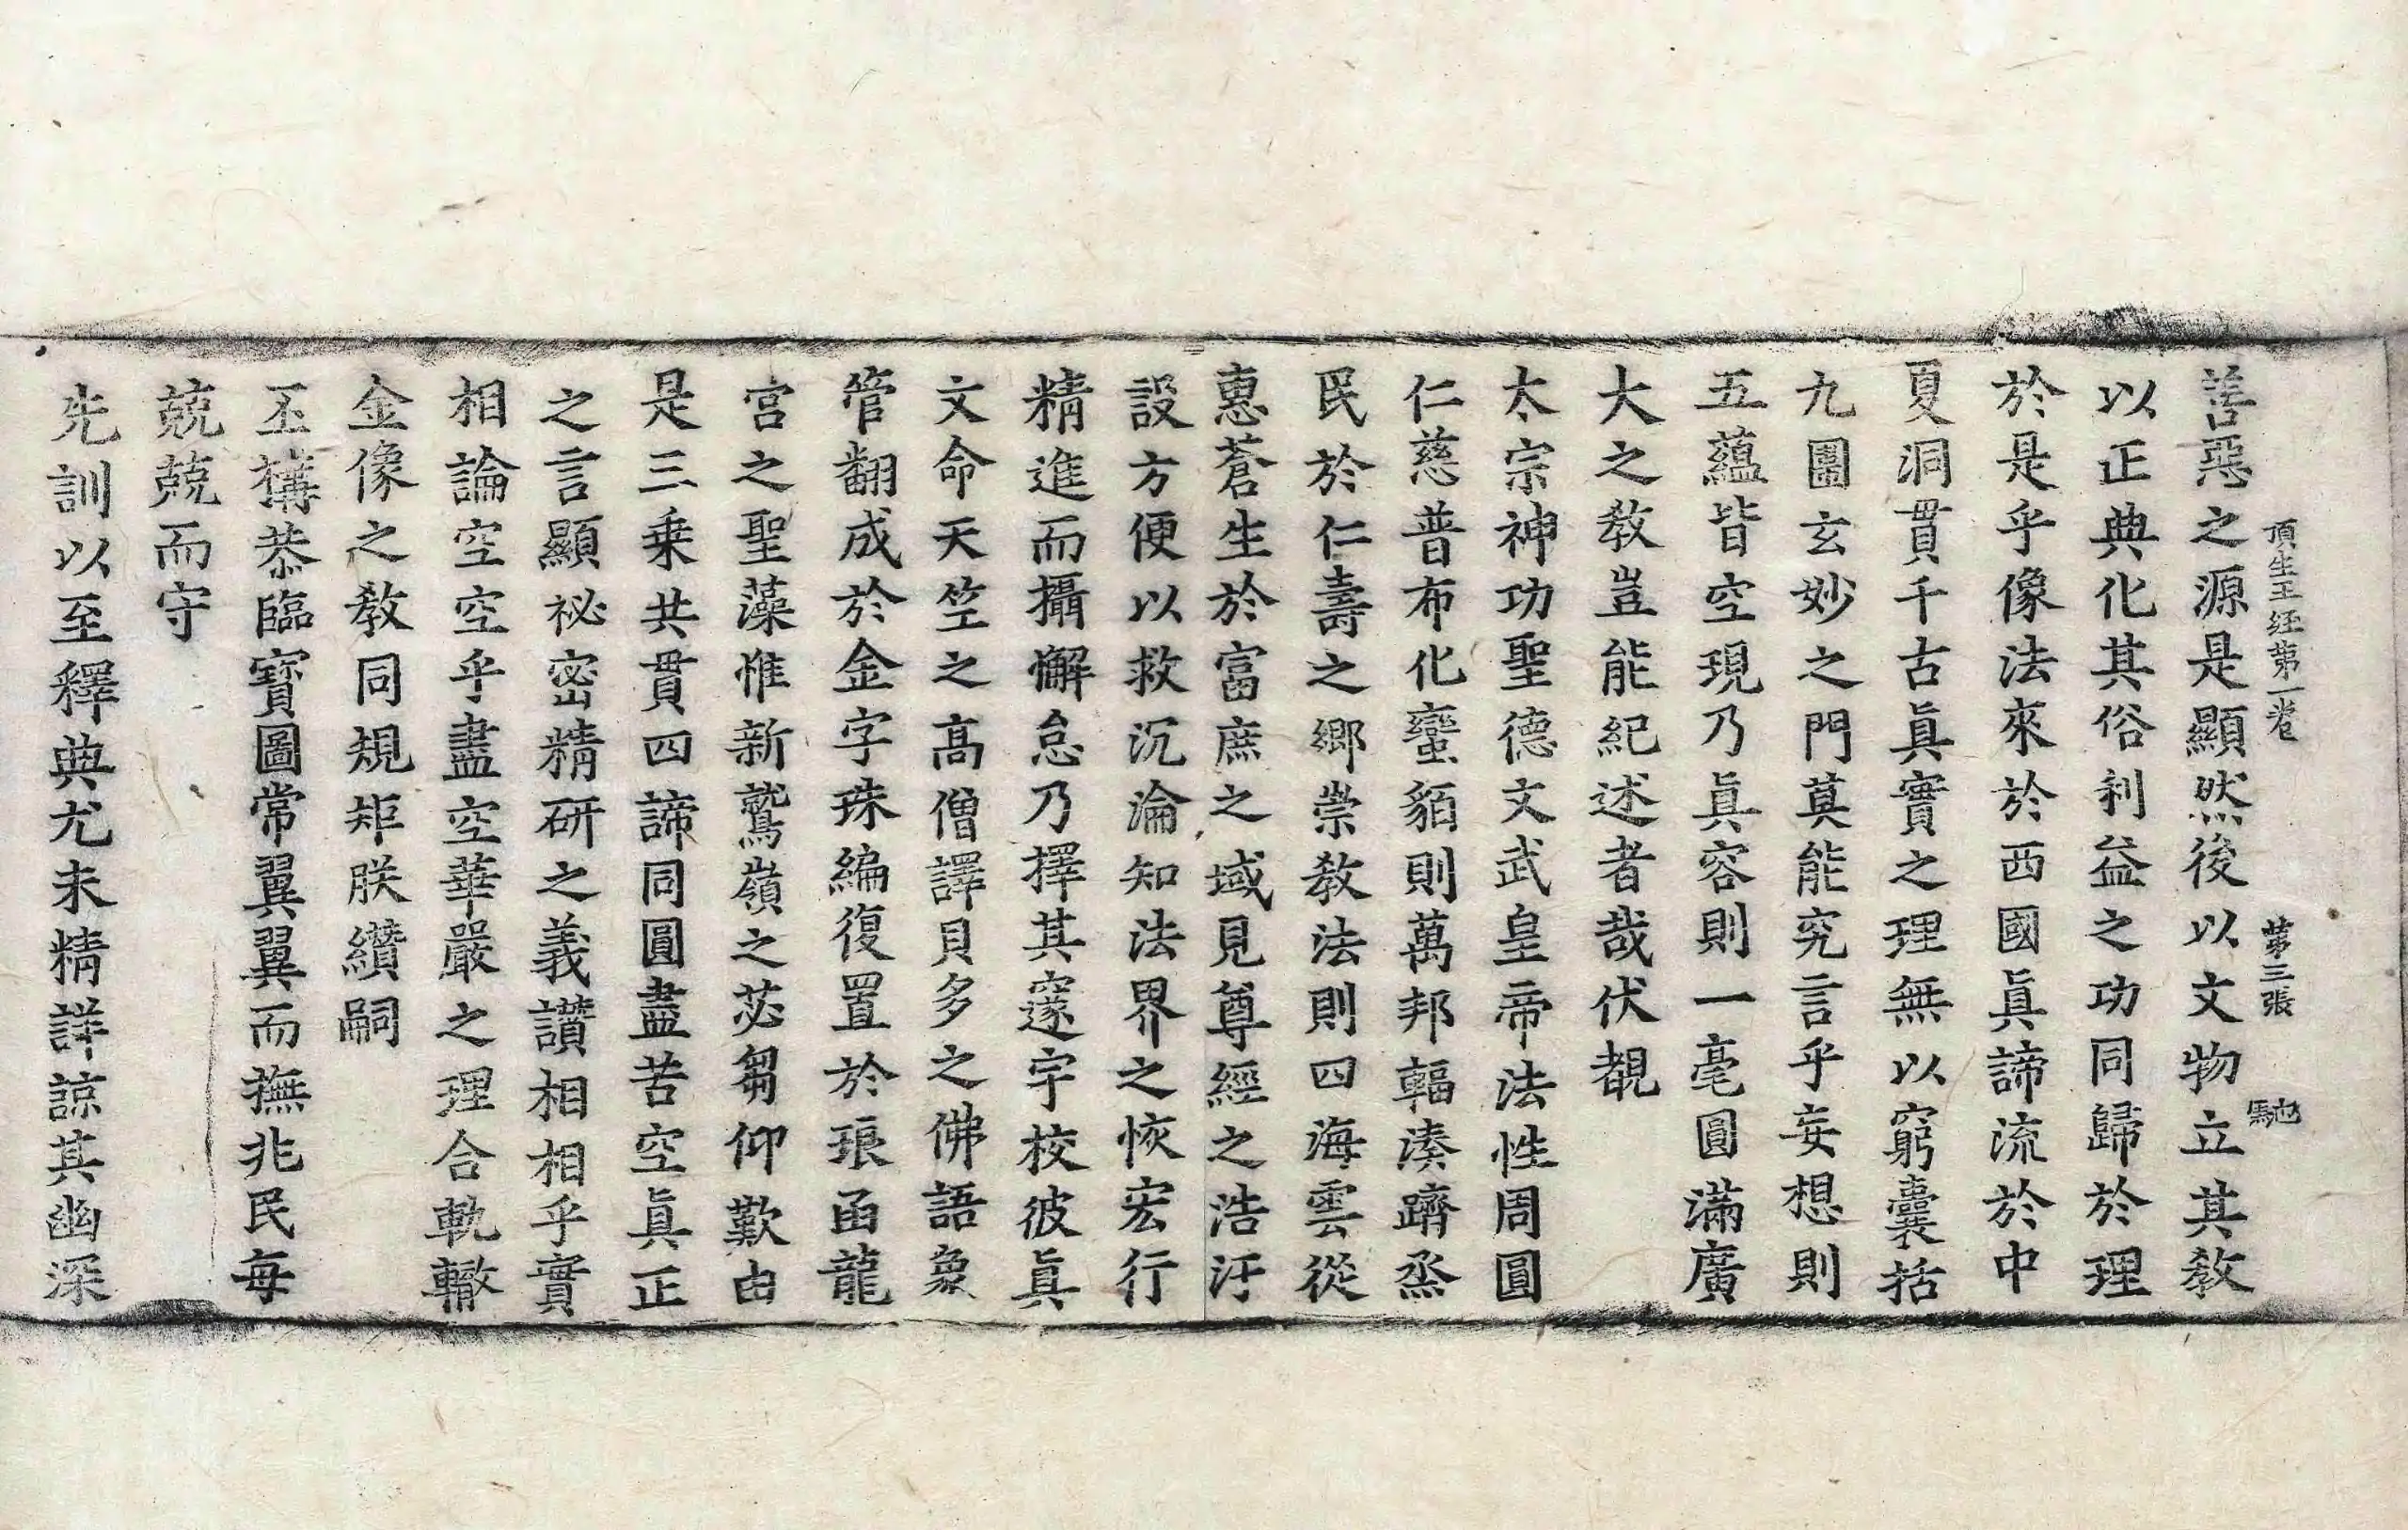 頂生王経第一卷 第三張 馳
善惡之源是顯然後以文物立其教
以正典化其俗利益之功同歸於理
於是乎像法來於西國眞諦流於中
夏洞貫千古眞實之理無以窮囊括
九圍玄妙之門莫能究言乎妄想則
五蘊皆空現乃眞容則一毫圓滿廣
大之教豈能紀述者哉伏覩
太宗神功聖德文武皇帝法性周圓
仁慈普布化蠻貊則萬邦輻湊躋烝
民於仁壽之鄉崇教法則四海雲從
惠蒼生於富庶之域見尊經之浩汗
設方便以救沉淪知法界之恢宏行
精進而攝懈怠乃擇其邃宇校彼眞
文命天竺之高僧譯貝多之佛語象
管翻成於金字珠編復置於琅函龍
宮之聖藻惟新鷲嶺之苾芻仰歎由
是三乗共貫四諦同圓盡苦空眞正
之言顯祕密精研之義讚相相乎實
相論空空乎盡空華嚴之理合軌轍
金像之教同規矩朕纘嗣
丕構恭臨寶圖常翼翼而撫兆民每
兢兢而守
先訓以至釋典尤未精詳諒其幽深